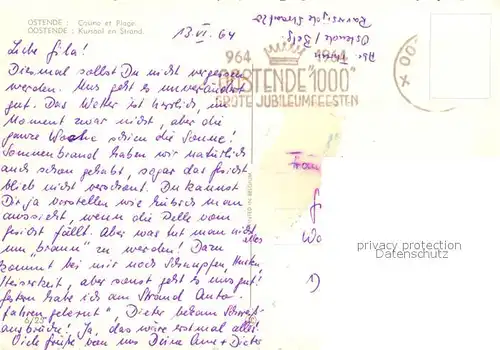 OSTENDE : Casino et Plage.
OOSTENDE : Kursaal en Strand.
13.VI. 64
Liebe Gila!
Diesmal sollst Du nicht vergessen
werden. Uns geht es unverändert
gut. Das Wetter ist herrlich, im
Moment zwar nicht, aber die
ganze Woche schien die Sonne!
Sonnenbrand haben wir natürlich
auch schon gehabt, sogar das Gesicht
blieb nicht verschont. Du kannst
Dir ja vorstellen wie hübsch man
aussieht, wenn die Pelle vom
Gesicht fällt. Aber was tut man nicht
alles
um "braun" zu werden! Dazu
kommt bei mir noch Schnupfen, Husten
Heiserkeit, aber sonst geht es uns gut!
Gestern habe ich am Strand Auto-
fahren gelernt, Dieter bekam Schweiß-
ausbrüche! Ja, das wäre erstmal alles!
Viele Grüße von uns Deine + Dieter
6/23
PRINTED IN BELGIUM
964 1964
OOSTENDE "1000"
GROTE JUBILEUMFEESTEN
Abs.
Ostende / Belg.
OO
X
Frau
G
Wo
privacy protection
Datenschutz